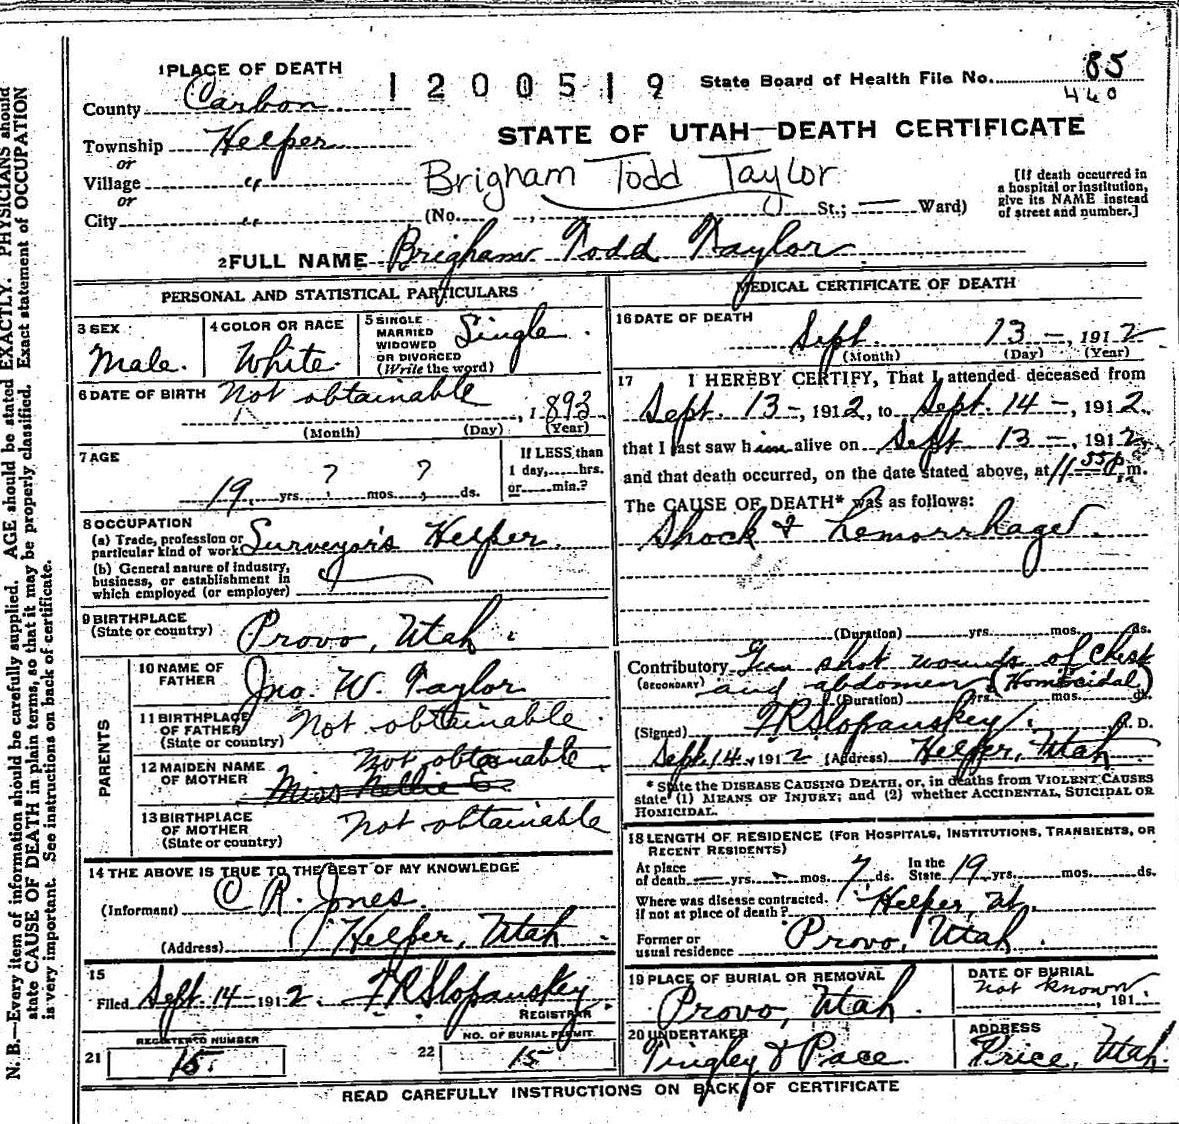 1 PLACE OF DEATH
1200519
State Board of Health File No. 85
460
County Carbon
STATE OF UTAH—DEATH CERTIFICATE
Township Helper
or
Village "
or
City "
Brigham Todd Taylor
(No. , St.; — Ward)
[If death occurred in
a hospital or institution,
give its NAME instead
of street and number.]
2 FULL NAME Brigham Todd Taylor
PERSONAL AND STATISTICAL PARTICULARS
3 SEX
Male.
4 COLOR OR RACE
White.
5 SINGLE
MARRIED
WIDOWED
OR DIVORCED
(Write the word)
Single
6 DATE OF BIRTH Not obtainable
, 1893
(Month) (Day) (Year)
7 AGE
19 yrs. ? mos. ? ds.
If LESS than
1 day, hrs.
or min.?
8 OCCUPATION
(a) Trade, profession or
particular kind of work Surveyor's Helper
(b) General nature of industry,
business, or establishment in
which employed (or employer)
9 BIRTHPLACE
(State or country) Provo, Utah
PARENTS
10 NAME OF
FATHER Jno. W. Taylor
11 BIRTHPLACE
OF FATHER
(State or country) Not obtainable
12 MAIDEN NAME
OF MOTHER
Not obtainable
Miss Nellie E.
13 BIRTHPLACE
OF MOTHER
(State or country) Not obtainable
14 THE ABOVE IS TRUE TO THE BEST OF MY KNOWLEDGE
(Informant) C. R. Jones.
(Address) Helper, Utah
15
Filed Sept. 14 - 1912. F R Slopanskey
REGISTRAR
REGISTERED NUMBER
21 15
NO. OF BURIAL PERMIT
22 15
MEDICAL CERTIFICATE OF DEATH
16 DATE OF DEATH
Sept. 13 -, 1912
(Month) (Day) (Year)
17 I HEREBY CERTIFY, That I attended deceased from
Sept. 13 -, 1912, to Sept. 14 -, 1912,
that I last saw him alive on Sept 13 -, 1912,
and that death occurred, on the date stated above, at 11 55 p m.
The CAUSE OF DEATH* was as follows:
Shock & hemorrhage
(Duration) yrs. mos. ds.
Contributory Gun shot wounds of chest
(SECONDARY) and abdomen (Homicidal)
(Duration) yrs. mos. ds.
(Signed) F R Slopanskey
Sept 14, 1912 (Address) Helper, Utah
* State the DISEASE CAUSING DEATH, or, in deaths from VIOLENT CAUSES
state (1) MEANS OF INJURY; and (2) whether ACCIDENTAL, SUICIDAL OR
HOMICIDAL.
18 LENGTH OF RESIDENCE (FOR HOSPITALS, INSTITUTIONS, TRANSIENTS, OR
RECENT RESIDENTS)
At place
of death — yrs. - mos. 7 ds.
In the
State 19 yrs. mos. ds.
Where was disease contracted,
if not at place of death? Helper, Ut.
Former or
usual residence Provo, Utah.
19 PLACE OF BURIAL OR REMOVAL
Provo, Utah.
DATE OF BURIAL
not known
, 191
20 UNDERTAKER
Tingley & Pace
ADDRESS
Price, Utah.
READ CAREFULLY INSTRUCTIONS ON BACK OF CERTIFICATE
N. B.—Every item of information should be carefully supplied. AGE should be stated EXACTLY. PHYSICIANS should
state CAUSE OF DEATH in plain terms, so that it may be properly classified. Exact statement of OCCUPATION
is very important. See instructions on back of certificate.